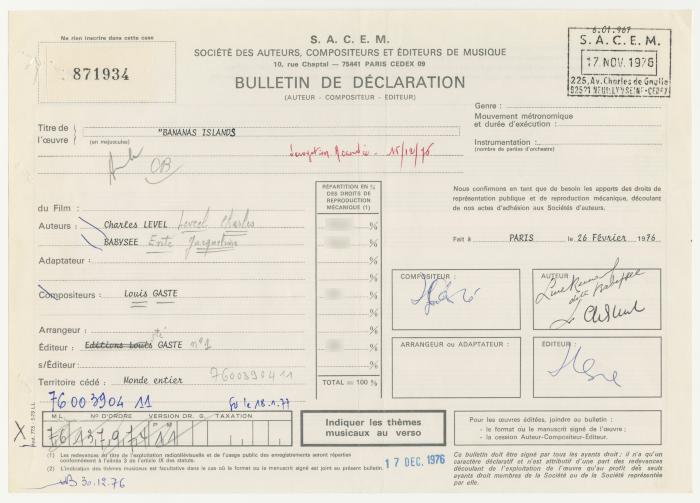 Ne rien inscrire dans cette case
871934
S. A. C. E. M.
SOCIÉTÉ DES AUTEURS, COMPOSITEURS ET ÉDITEURS DE MUSIQUE
10, rue Chaptal — 75441 PARIS CEDEX 09
BULLETIN DE DÉCLARATION
(AUTEUR - COMPOSITEUR - EDITEUR)
6.01.967
S. A. C. E. M.
17 NOV. 1976
225, Av. Charles de Gaulle
92521 NEUILLY S/SEINE-CEDEX
Genre :
Mouvement métronomique
et durée d'exécution :
Instrumentation :
(nombre de parties d'orchestre)
Titre de
l'œuvre
(en majuscules)
"BANANAS ISLANDS
15/12/76
OB
RÉPARTITION EN %
DES DROITS DE
REPRODUCTION
MÉCANIQUE (1)
Nous confirmons en tant que de besoin les apports des droits de
représentation publique et de reproduction mécanique, découlant
de nos actes d'adhésion aux Sociétés d'auteurs.
du Film :
Auteurs : Charles LEVEL Levcel Charles %
BABYSEE Jacqueline %
Fait à PARIS le 26 Février 1976
Adaptateur : %
Compositeurs : Louis GASTE %
%
Arrangeur : %
Éditeur : Editions Louis GASTE n°1 %
s/Éditeur : %
Territoire cédé : Monde entier 76003904 11
TOTAL = 100 %
COMPOSITEUR :
AUTEUR :
ARRANGEUR ou ADAPTATEUR :
ÉDITEUR :
76 003904 11
18.1.77
M.L. N° D'ORDRE VERSION DR. G. TAXATION
X
Indiquer les thèmes
musicaux au verso
Pour les œuvres éditées, joindre au bulletin :
- le format ou le manuscrit signé de l'œuvre ;
- la cession Auteur-Compositeur-Éditeur.
(1) Les redevances au titre de l'exploitation radiotélévisuelle et de l'usage public des enregistrements seront réparties
conformément à l'article 3 de l'article IX des statuts.
(2) L'indication des thèmes musicaux est facultative dans le cas où le format ou le manuscrit signé est joint au présent bulletin.
17 DEC. 1976
Ce bulletin doit être signé par tous les ayants droit ; il n'a qu'un
caractère déclaratif et n'est attributif d'une part des redevances
découlant de l'exploitation de l'œuvre qu'au profit des seuls
ayants droit membres de la Société ou de la Société représentée
par elle.
30.12.76